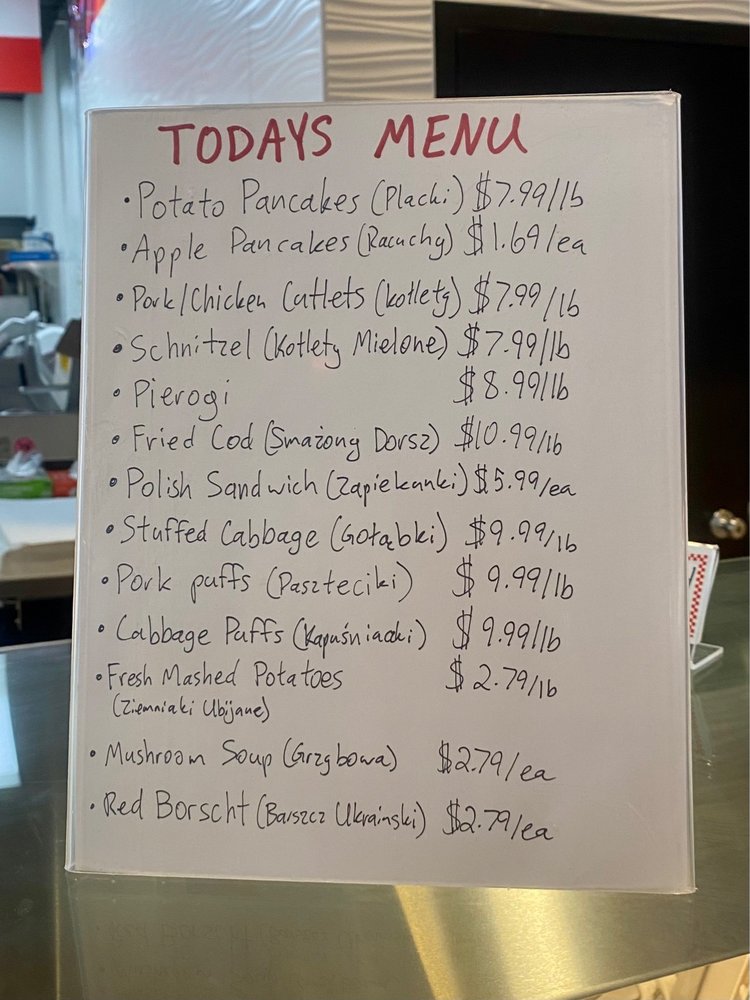 TODAYS MENU
• Potato Pancakes (Placki) $7.99/lb
• Apple Pancakes (Racuchy) $1.69/ea
• Pork/Chicken Cutlets (kotlety) $7.99/lb
• Schnitzel (Kotlety Mielone) $7.99/lb
• Pierogi $8.99/lb
• Fried Cod (Smażony Dorsz) $10.99/lb
• Polish Sandwich (Zapiekanki) $5.99/ea
• Stuffed Cabbage (Gołąbki) $9.99/lb
• Pork puffs (Paszteciki) $9.99/lb
• Cabbage Puffs (Kapuśniaczki) $9.99/lb
• Fresh Mashed Potatoes $2.79/lb
(Ziemniaki Ubijane)
• Mushroom Soup (Grzybowa) $2.79/ea
• Red Borscht (Barszcz Ukraiński) $2.79/ea